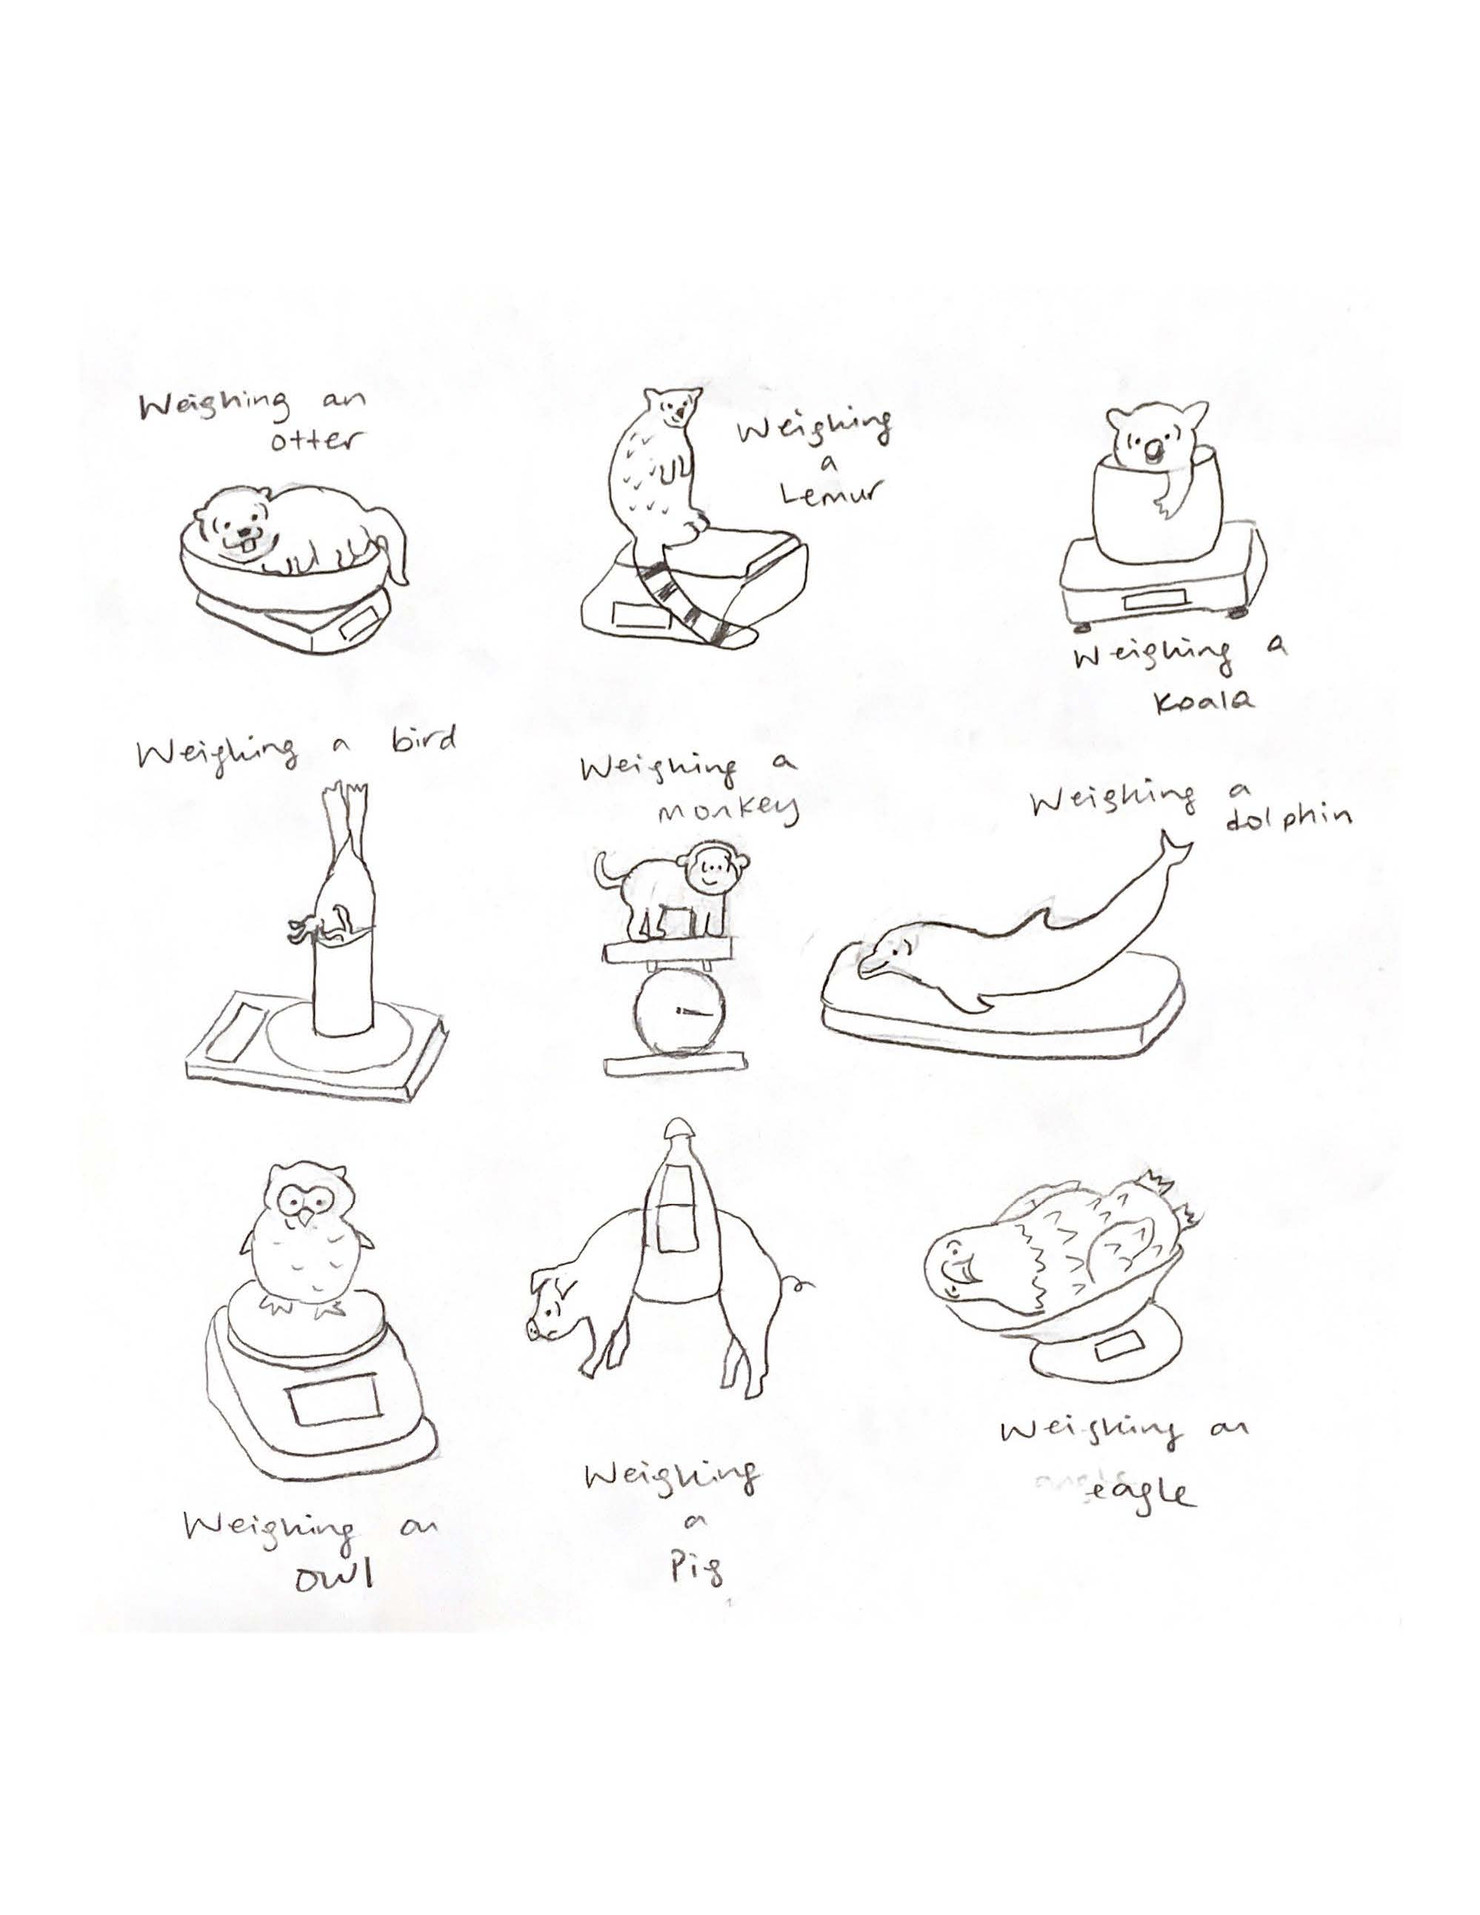 Weighing an
otter
Weighing
a
Lemur
Weighing a
koala
Weighing a bird
Weighing a
monkey
Weighing a
dolphin
Weighing an
owl
Weighing
a
Pig
Weighing an
eagle